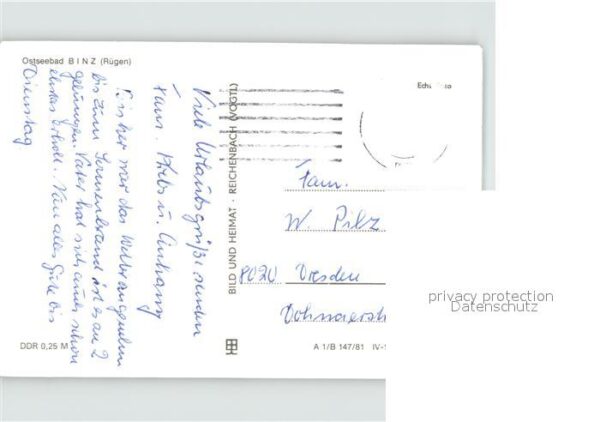 Ostseebad BINZ (Rügen)
Viele Urlaubsgrüße senden
Fam.
Bisher war das Wetter angenehm
bis zum Sonnenbrand ist es an 2
gelungen. Vater hat sich auch schon
etwas erholt. Nun alles Gute bis
Dienstag
DDR 0,25 M
BILD UND HEIMAT · REICHENBACH (VOGTL)
Echt Foto
Fam.
W. Pilz
8020 Dresden
Dohnaerstr
A 1/B 147/81 IV-
privacy protection
Datenschutz